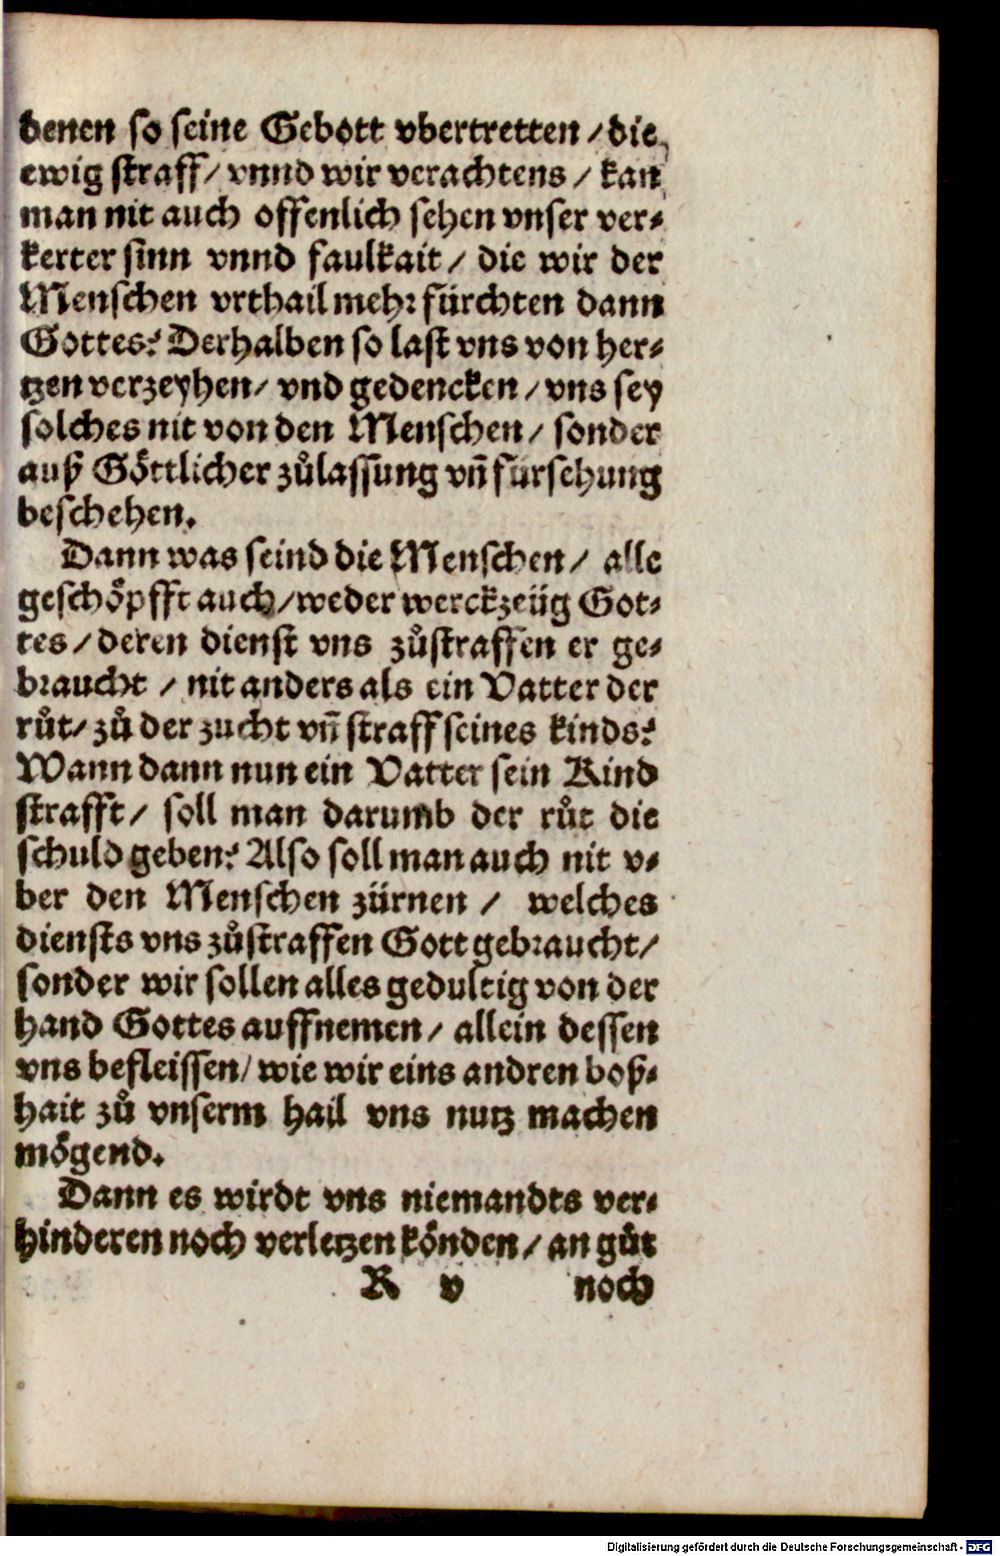 denen so seine Gebott vbertretten / die
ewig straff / vnnd wir verachtens / kan
man nit auch offenlich sehen vnser ver⸗
kerter sinn vnnd faulkait / die wir der
Menschen vrthail mehr fürchten dann
Gottes? Derhalben so last vns von her⸗
tzen verzeyhen / vnd gedencken / vns sey
solches nit von den Menschen / sonder
auß Göttlicher zůlassung vñ fürsehung
beschehen.
Dann was seind die Menschen / alle
geschöpfft auch / weder werckzeüg Got⸗
tes / deren dienst vns zůstraffen er ge⸗
braucht / nit anders als ein Vatter der
růt / zů der zucht vñ straff seines kinds?
Wann dann nun ein Vatter sein Kind
strafft / soll man darumb der růt die
schuld geben? Also soll man auch nit v⸗
ber den Menschen zürnen / welches
diensts vns zůstraffen Gott gebraucht /
sonder wir sollen alles gedultig von der
hand Gottes auffnemen / allein dessen
vns befleissen / wie wir eins andren boß⸗
hait zů vnserm hail vns nutz machen
mögend.
Dann es wirdt vns niemandts ver⸗
hinderen noch verletzen könden / an gůt
R v noch
Digitalisierung gefördert durch die Deutsche Forschungsgemeinschaft - DFG